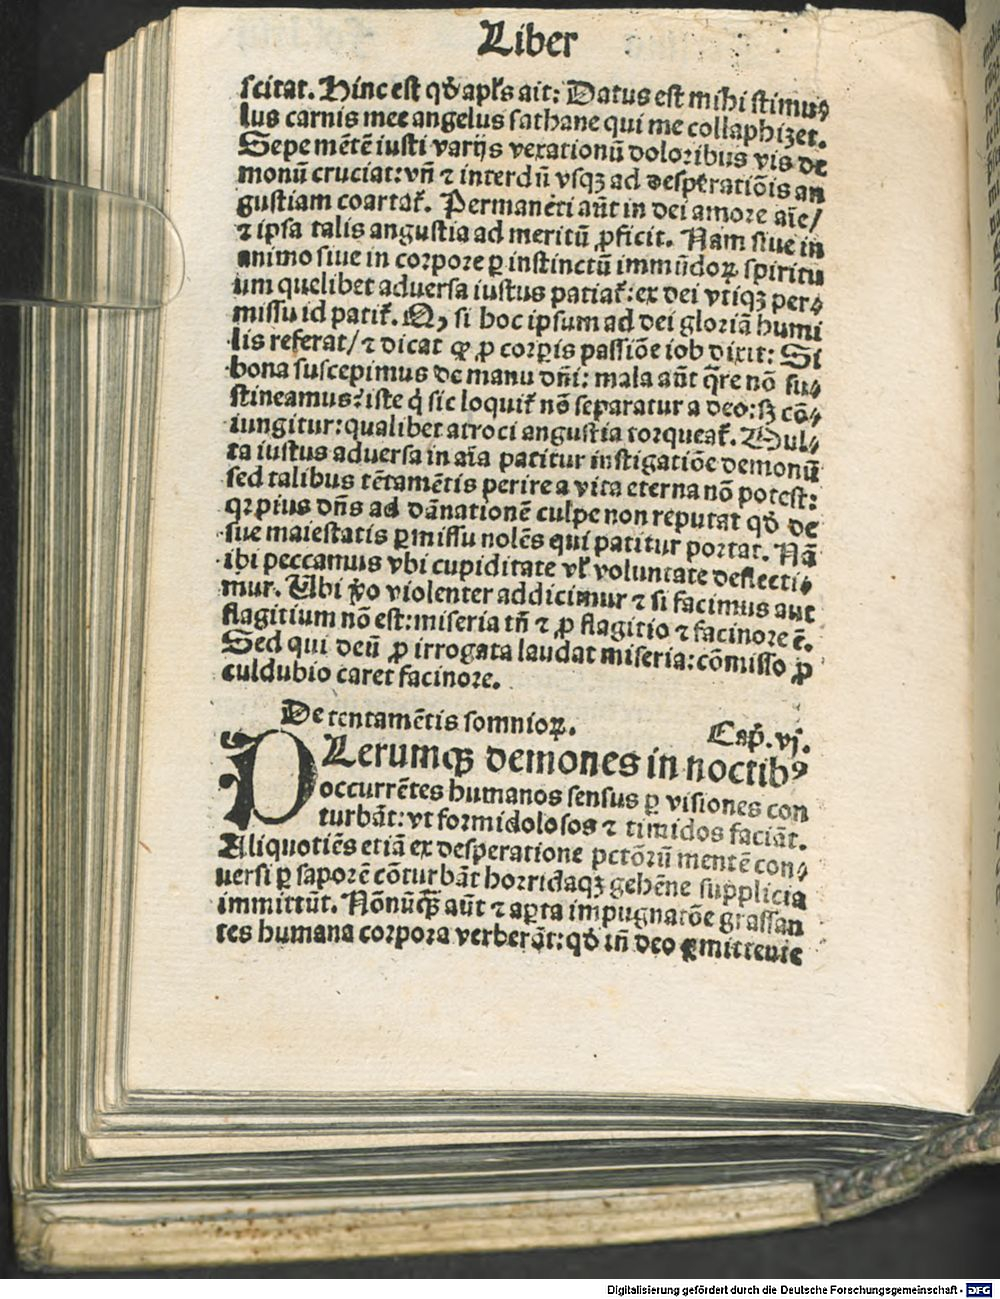 Liber
scitat. Hinc est qđ apl's ait: Datus est mihi stimu⸗
lus carnis mee angelus sathane qui me collaphizet.
Sepe mētē iusti varijs vexationū doloribus vis de
monū cruciat: vñ ⁊ interdū vsqꝫ ad desperatiōis an
gustiam coartat̄. Permanēti aūt in dei amore aīe/
⁊ ipsa talis angustia ad meritū ꝓficit. Nam siue in
animo siue in corpore ꝑ instinctū immūdoꝝ spiritu
um quelibet aduersa iustus patiat̄: ex dei vtiqꝫ per⸗
missu id patit̄. Qꝫ si hoc ipsum ad dei gloriā humi
lis referat/ ⁊ dicat qꝙ ꝓ corꝑis passiōe iob dixit: Si
bona suscepimus de manu dñi: mala aūt q̄re nō su⸗
stineamus? iste q̇ sic loquit̄ nō separatur a deo: sꝫ cō⸗
iungitur: qualibet atroci angustia torqueat̄. Mul⸗
ta iustus aduersa in aīa patitur instigatiōe demonū
sed talibus tētamētis perire a vita eterna nō potest:
qꝛ pius dñs ad dānationē culpe non reputat qđ de
sue maiestatis ꝑmissu nolēs qui patitur portat. Nā
ibi peccamus vbi cupiditate vl' voluntate deflecti⸗
mur. Ubi ꝟo violenter addicimur ⁊ si facimus aut
flagitium nō est: miseria tñ ⁊ ꝓ flagitio ⁊ facinore ē.
Sed qui deū ꝓ irrogata laudat miseria: cōmisso ꝓ
culdubio caret facinore.
De tentamētis somnioꝝ. Cap̄. vj.
PLerumqꝫ demones in noctibꝰ
occurrētes humanos sensus ꝑ visiones con
turbāt: vt formidolosos ⁊ timidos faciāt.
Aliquotiēs etiā ex desperatione pctōꝝ mentē con⸗
uersi ꝑ saporē cōturbāt horridaqꝫ gehēne supplicia
immittūt. Nōnūqꝫ aūt ⁊ aꝑta impugnatōe grassan
tes humana corpora verberāt: qđ tñ deo ꝑmittente
Digitalisierung gefördert durch die Deutsche Forschungsgemeinschaft - DFG